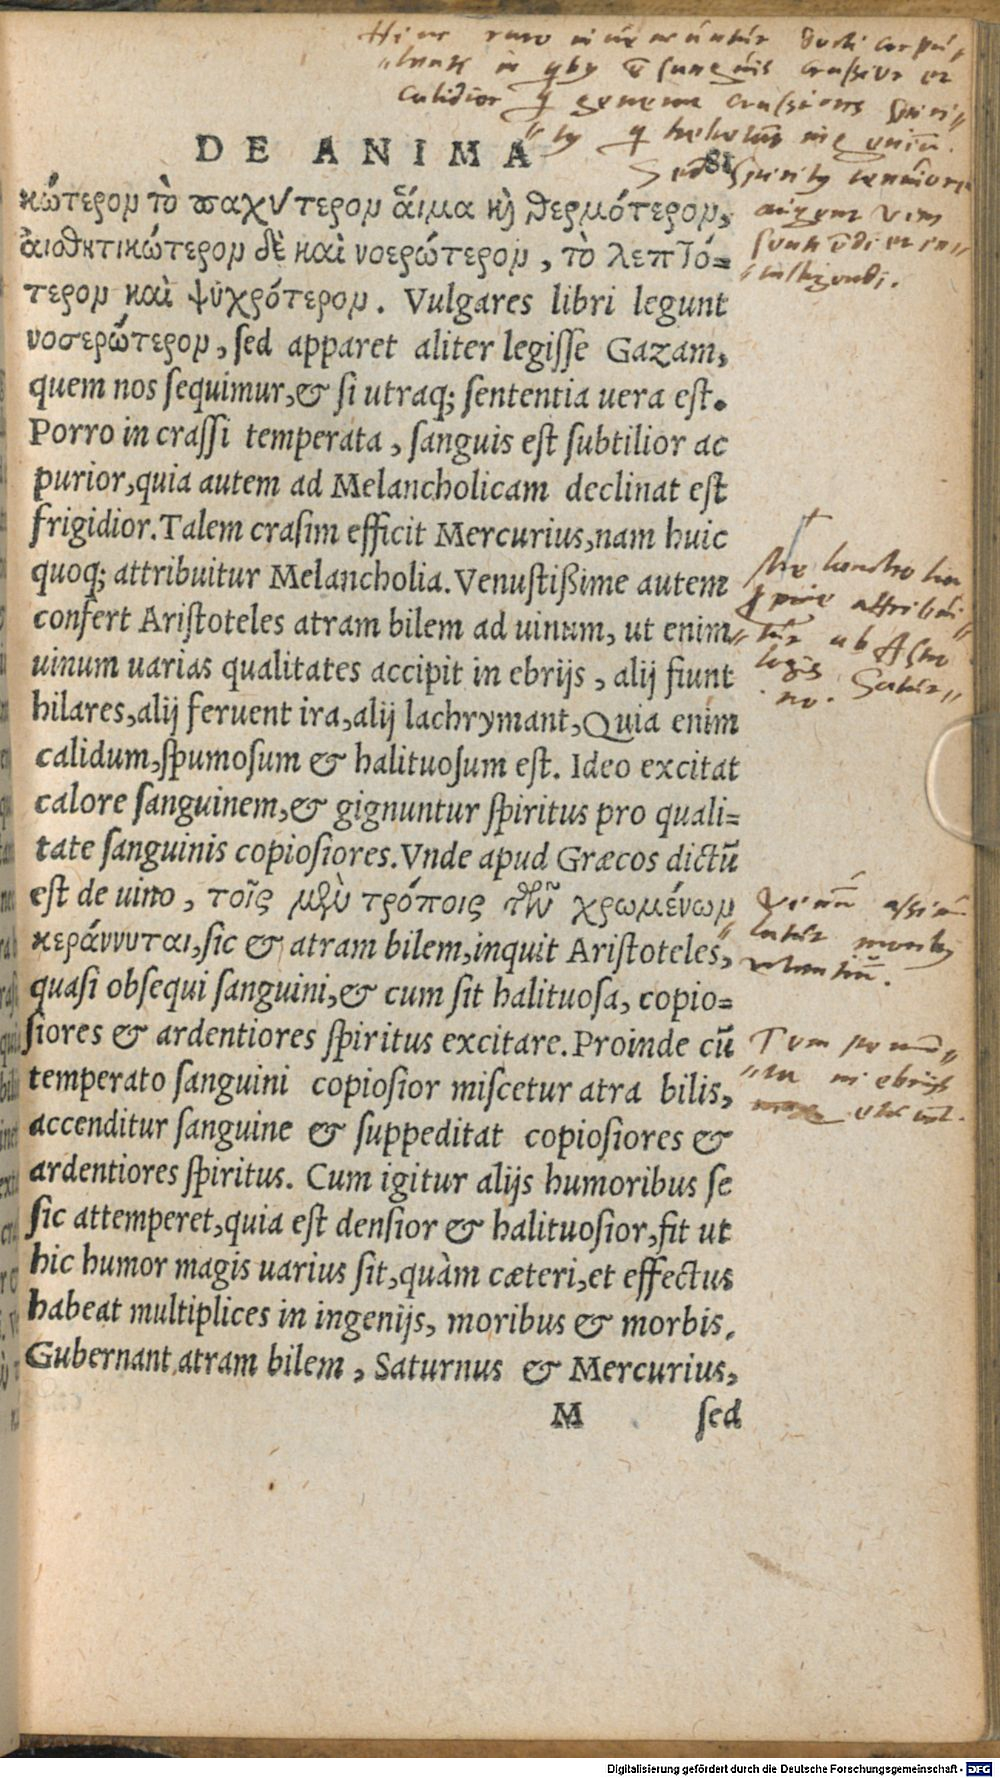 Hinc raro inueniuntur docti corpu„
„lenti in qby sanguis crassior et
calidior generat crassiores spiri„
„ty hebetu ingeniu.
Sed Spirity tenuiores
augent vim
et in„
„telligendi.
DE ANIMA 81
κώτερον τὸ παχύτερον ἇιμα κỳ θερμότερον,
ἀισθητικώτερον δὲ καὶ νοερώτερον, τὸ λεπτό=
τερον καὶ ψυχρότερον. Vulgares libri legunt
νοσερώτερον, sed apparet aliter legiſſe Gazam,
quem nos ſequimur, & ſi utraq; ſententia uera eſt.
Porro in craſſi temperata, ſanguis eſt ſubtilior ac
purior, quia autem ad Melancholicam declinat eſt
frigidior. Talem craſim efficit Mercurius, nam huic
quoq; attribuitur Melancholia. Venuſtißime autem
confert Ariſtoteles atram bilem ad uinum, ut enim
uinum uarias qualitates accipit in ebrijs, alij fiunt
hilares, alij feruent ira, alij lachrymant, Quia enim
calidum, ſpumoſum & halituoſum eſt. Ideo excitat
calore ſanguinem, & gignuntur ſpiritus pro quali=
tate ſanguinis copioſiores. Vnde apud Græcos dictũ
eſt de uino, τοῖς τρόποις τῶν χρωμένων
κεράννυται, ſic & atram bilem, inquit Ariſtoteles,
quaſi obſequi ſanguini, & cum ſit halituoſa, copio=
ſiores & ardentiores ſpiritus excitare. Proinde cũ
temperato ſanguini copioſior miſcetur atra bilis,
accenditur ſanguine & ſuppeditat copioſiores &
ardentiores ſpiritus. Cum igitur alijs humoribus ſe
ſic attemperet, quia eſt denſior & halituoſior, fit ut
hic humor magis uarius ſit, quàm cæteri, et effectus
habeat multiplices in ingenijs, moribus & morbis.
Gubernant atram bilem, Saturnus & Mercurius,
M sed
Melancholia
attribui„
„tur ab Astro
logis Satur„
no.
Vinũ assimi
„latur moriby
utentiũ.
Tum
in ebrijs